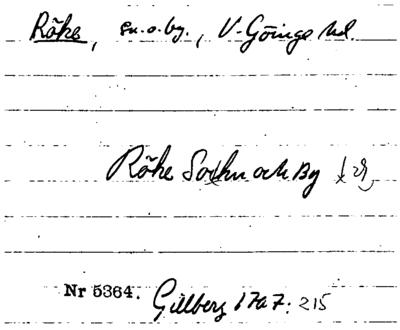 Röke, sn.o.by., V-Göinge hd.
Röke Sochn och By
Nr 5364. Gillberg 1767: 215